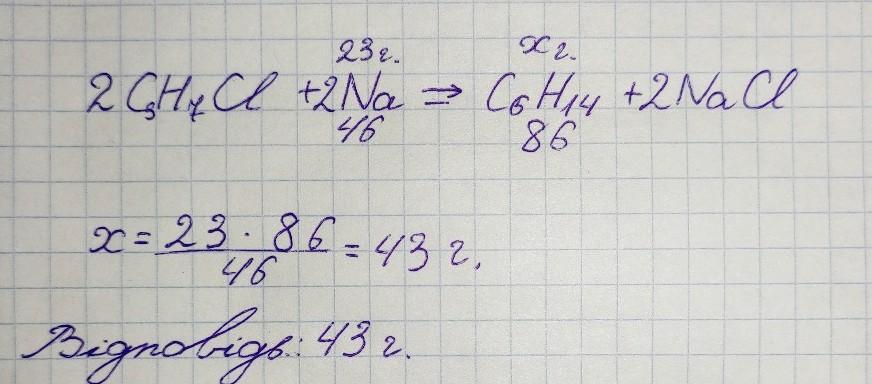 23г. xг.
2C₃H₇Cl +2Na → C₆H₁₄ +2NaCl
46 86
x = 23 · 86 / 46 = 43 г.
Відповідь: 43 г.